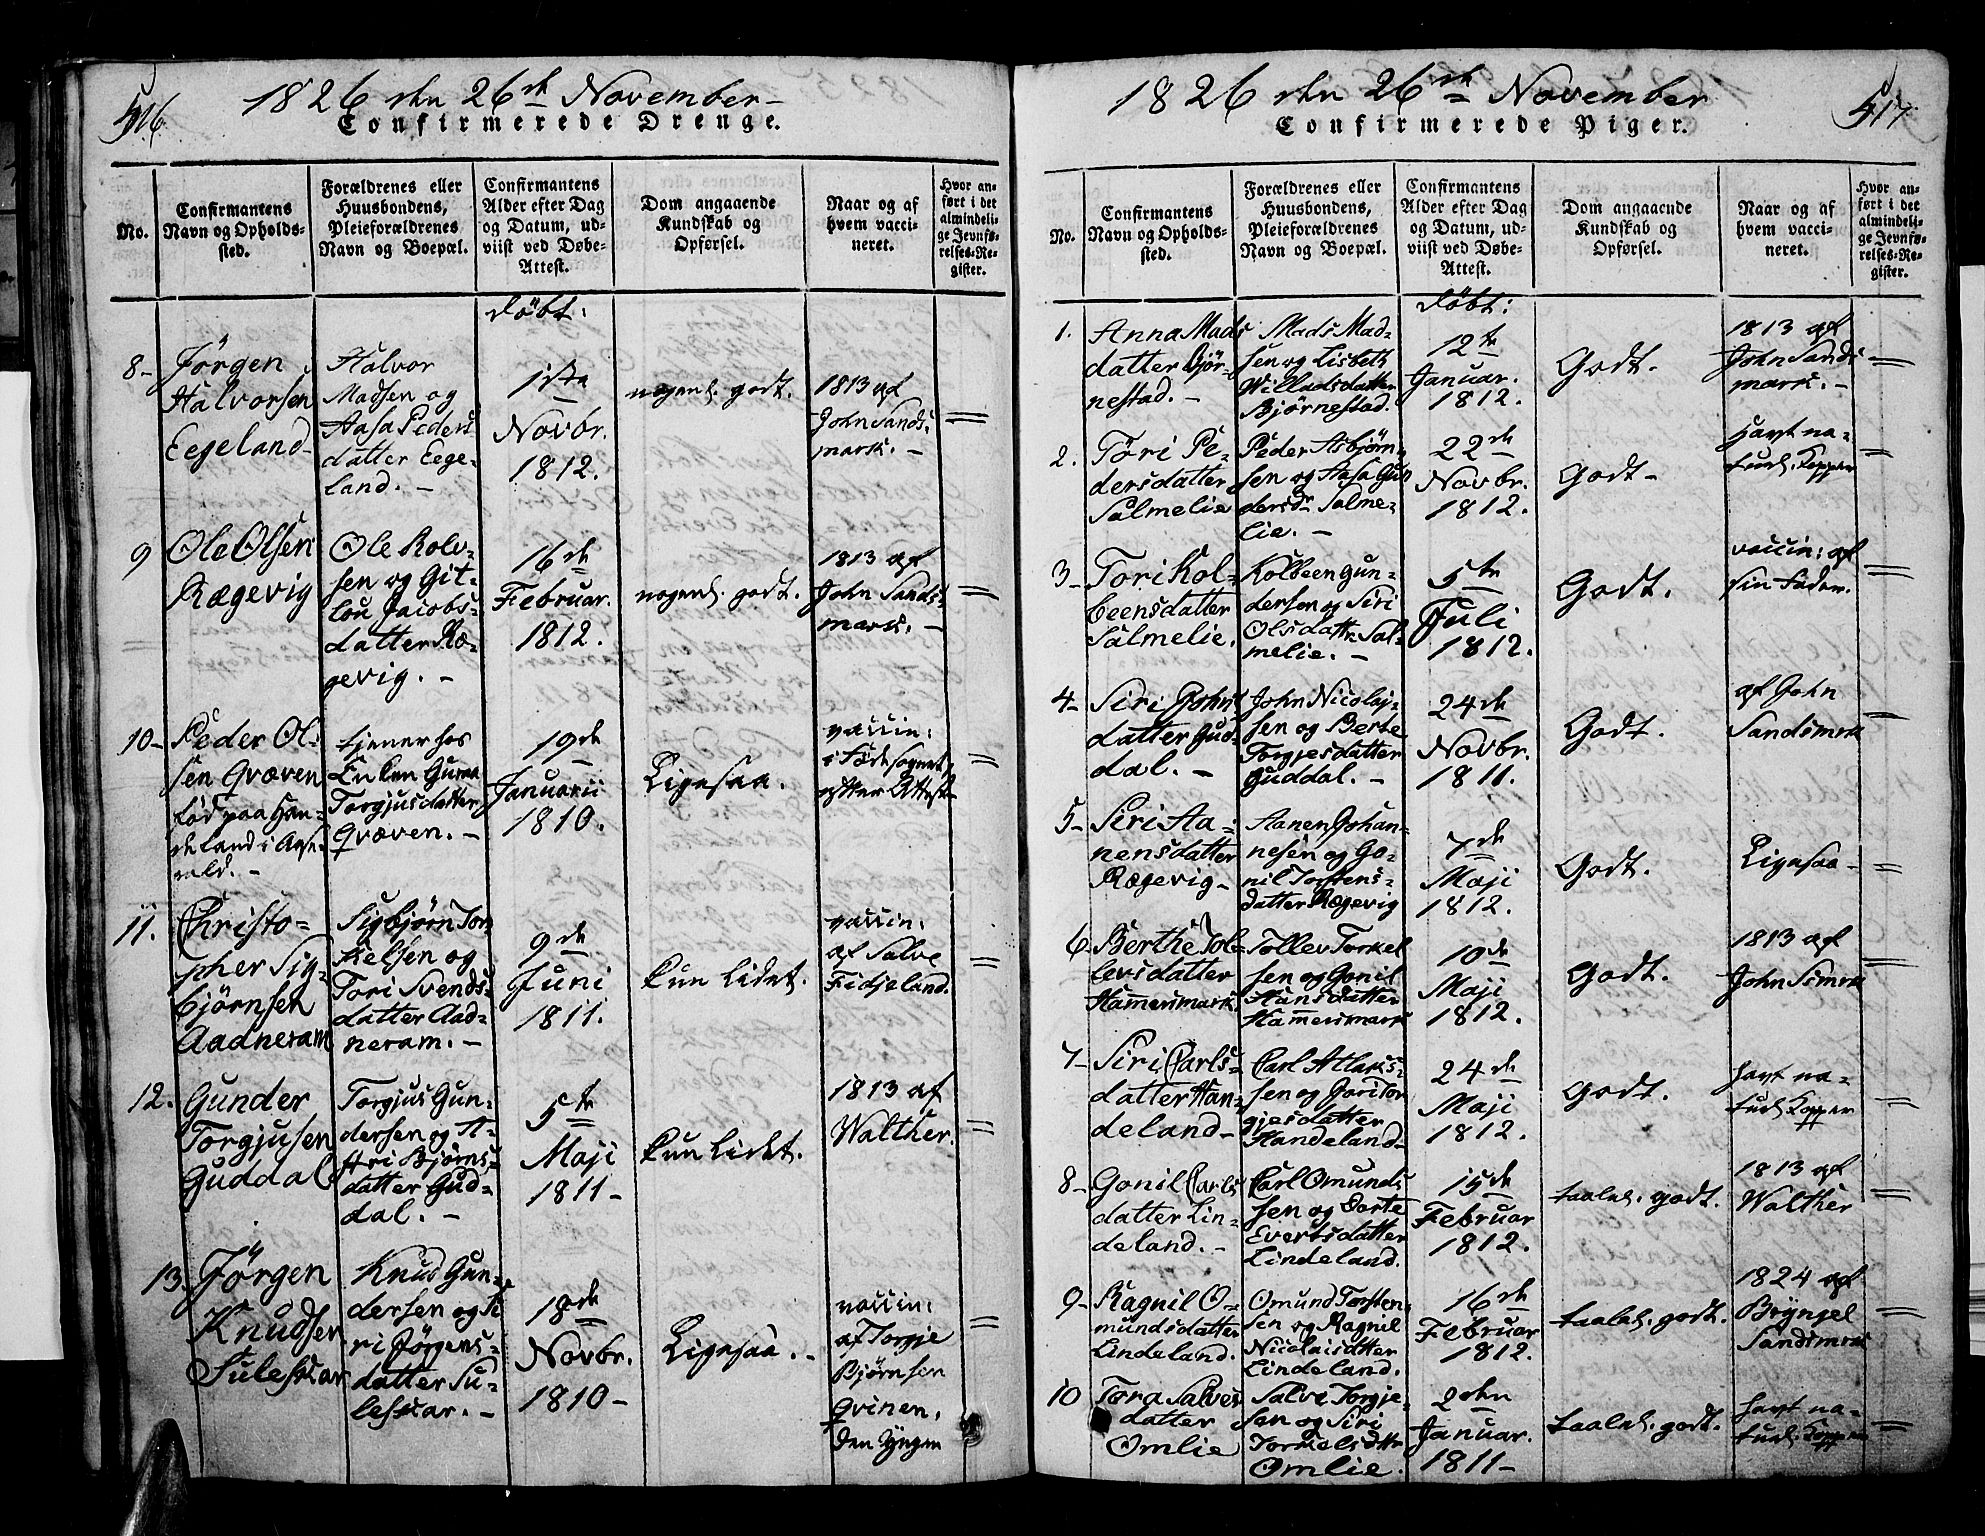 516.
1826 den 26de November
Confirmerede Drenge.
No.
Confirmantens
Navn og Opholds-
sted.
Forældrenes eller
Huusbondens,
Pleieforældrenes
Navn og Boepæl.
Confirmantens
Alder efter Dag
og Datum, ud-
viist ved Døbe-
Attest.
Dom angaaende
Kundskab og
Opførsel.
Naar og af
hvem vacci-
neret.
Hvor an-
ført i det
almindeli-
ge Jevnfø-
relses-Re-
gister.
døbt:
8-
Jørgen
Halvorsen
Eegeland
Halvor
Madsen og
Aasa Peders
datter Eege-
land. -
1ste
Novbr.
1812.
nogenl. godt.
1813 af
John Sands-
mark. -
=
9
Ole Olsen
Rægevig
Ole Rolv-
sen og Git-
lou Jacobs-
datter Ræ-
gevig. -
16de
Februar.
1812.
nogenl. godt.
1813 af
John Sands-
mark. -
=
10-
Peder Ol-
sen Qvæven
født paa Han-
deland i Aase-
rald. -
tjener hos
Enken Guroe
Torgjusdatter
Qvæven. -
19de
Januarii
1810.
Ligesaa.
vaccin:
i Fødesognet,
efter Attest
=
11.
Christo-
pher Sig-
bjørnsen
Aadneram
Sigbjørn Tor-
kelsen og
Tori Svends-
datter Aad-
neram. -
9de
Juni
1811.
kun Lidet.
vaccin:
af Salve
Fidjeland.
=
12.
Gunder
Torgjusen
Guddal
Torgjus Gun-
dersen og A-
thri Bjørns-
datter Gud-
dal. -
5te
Maji
1811-
kun Lidet.
1813 af
Walther.
=
13.
Jørgen
Knudsen
Suleskar
Knud Gun-
dersen og Si
ri Jørgens-
datter Su-
leskar. -
18de
Novbr.
1810-
Ligesaa. -
vaccin:
af Torgje
Bjørnsen
Qvinen,
den Yngre
=
517.
1826 den 26de November
Confirmerede Piger.
No.
Confirmantens
Navn og Opholds-
sted.
Forældrenes eller
Huusbondens,
Pleieforældrenes
Navn og Boepæl.
Confirmantens
Alder efter Dag
og Datum, ud-
viist ved Døbe-
Attest.
Dom angaaende
Kundskab og
Opførsel.
Naar og af
hvem vacci-
neret.
Hvor an-
ført i det
almindeli-
ge Jevnfø-
relses-Re-
gister.
døbt:
1.
Anna Mads
datter Bjør-
nestad. -
Mads Mad-
sen og Lisbeth
Willadsdatter
Bjørnestad.
12te
Januar.
1812.
Godt.
1813 af
John Sands
mark. -
=
2.
Tøri Pe-
dersdatter
Salmelie
Peder Asbjørn-
sen og Aasa Gun
dersdr Salme-
lie. -
22de
Novbr.
1812.
Godt-
havt na-
turl. Kopper
=
3-
Tori Kol-
beensdatter
Salmelie.
Kolbeen Gun-
dersen og Siri
Olsdattr. Sal-
melie. -
5te
Juli
1812.
Godt.
vaccin: af
sin Fader.
=
4-
Siri Johns
datter Gud-
dal. -
John Nicolaj-
sen og Berte
Torgjesdatter
Guddal. -
24de
Novbr.
1811.
Godt.
af John
Sandsmrk
=
5-
Siri Aa-
nensdatter
Rægevig-
Aanen Johan-
nesen og Go-
nil Torstens-
datter Rægevig
7de
Maji
1812.
Godt.
Ligesaa-
=
6
Berthe Tol-
levsdatter
Hamersmark
Tollev Torkel
sen og Gonil
Hansdatter
Hamersmark
10de
Maji
1812.
Godt.
1813 af
John Ssmrk
=
7-
Siri Carls-
datter Han-
deland-
Carl Atlaks-
sen og Gori Tor
gjesdatter
Handeland-
24de
Maji
1812.
Godt.
havt na-
turl. Kopper
=
8-
Gonil Carls
datter Lin-
deland. -
Carl Omunds
sen og Dorte
Evertsdatter
Lindeland.
15de
Februar
1812.
taalel. godt.
1813 af
Walther
=
9-
Ragnil O-
mundsdatter
Lindeland.
Omund Torsten-
sen og Ragnil
Nicolaisdtter
Lindeland.
16de
Februar
1812.
taalel. godt.
1824 af
Brynjel
Sandsmrk
=
10
Tora Salves
datter
Omlie
Salve Torgje-
sen og Siri
Torkelsdttr
Omlie.
2den
Januar.
1811-
taalel. godt.
havt na-
turl. Kopper
=